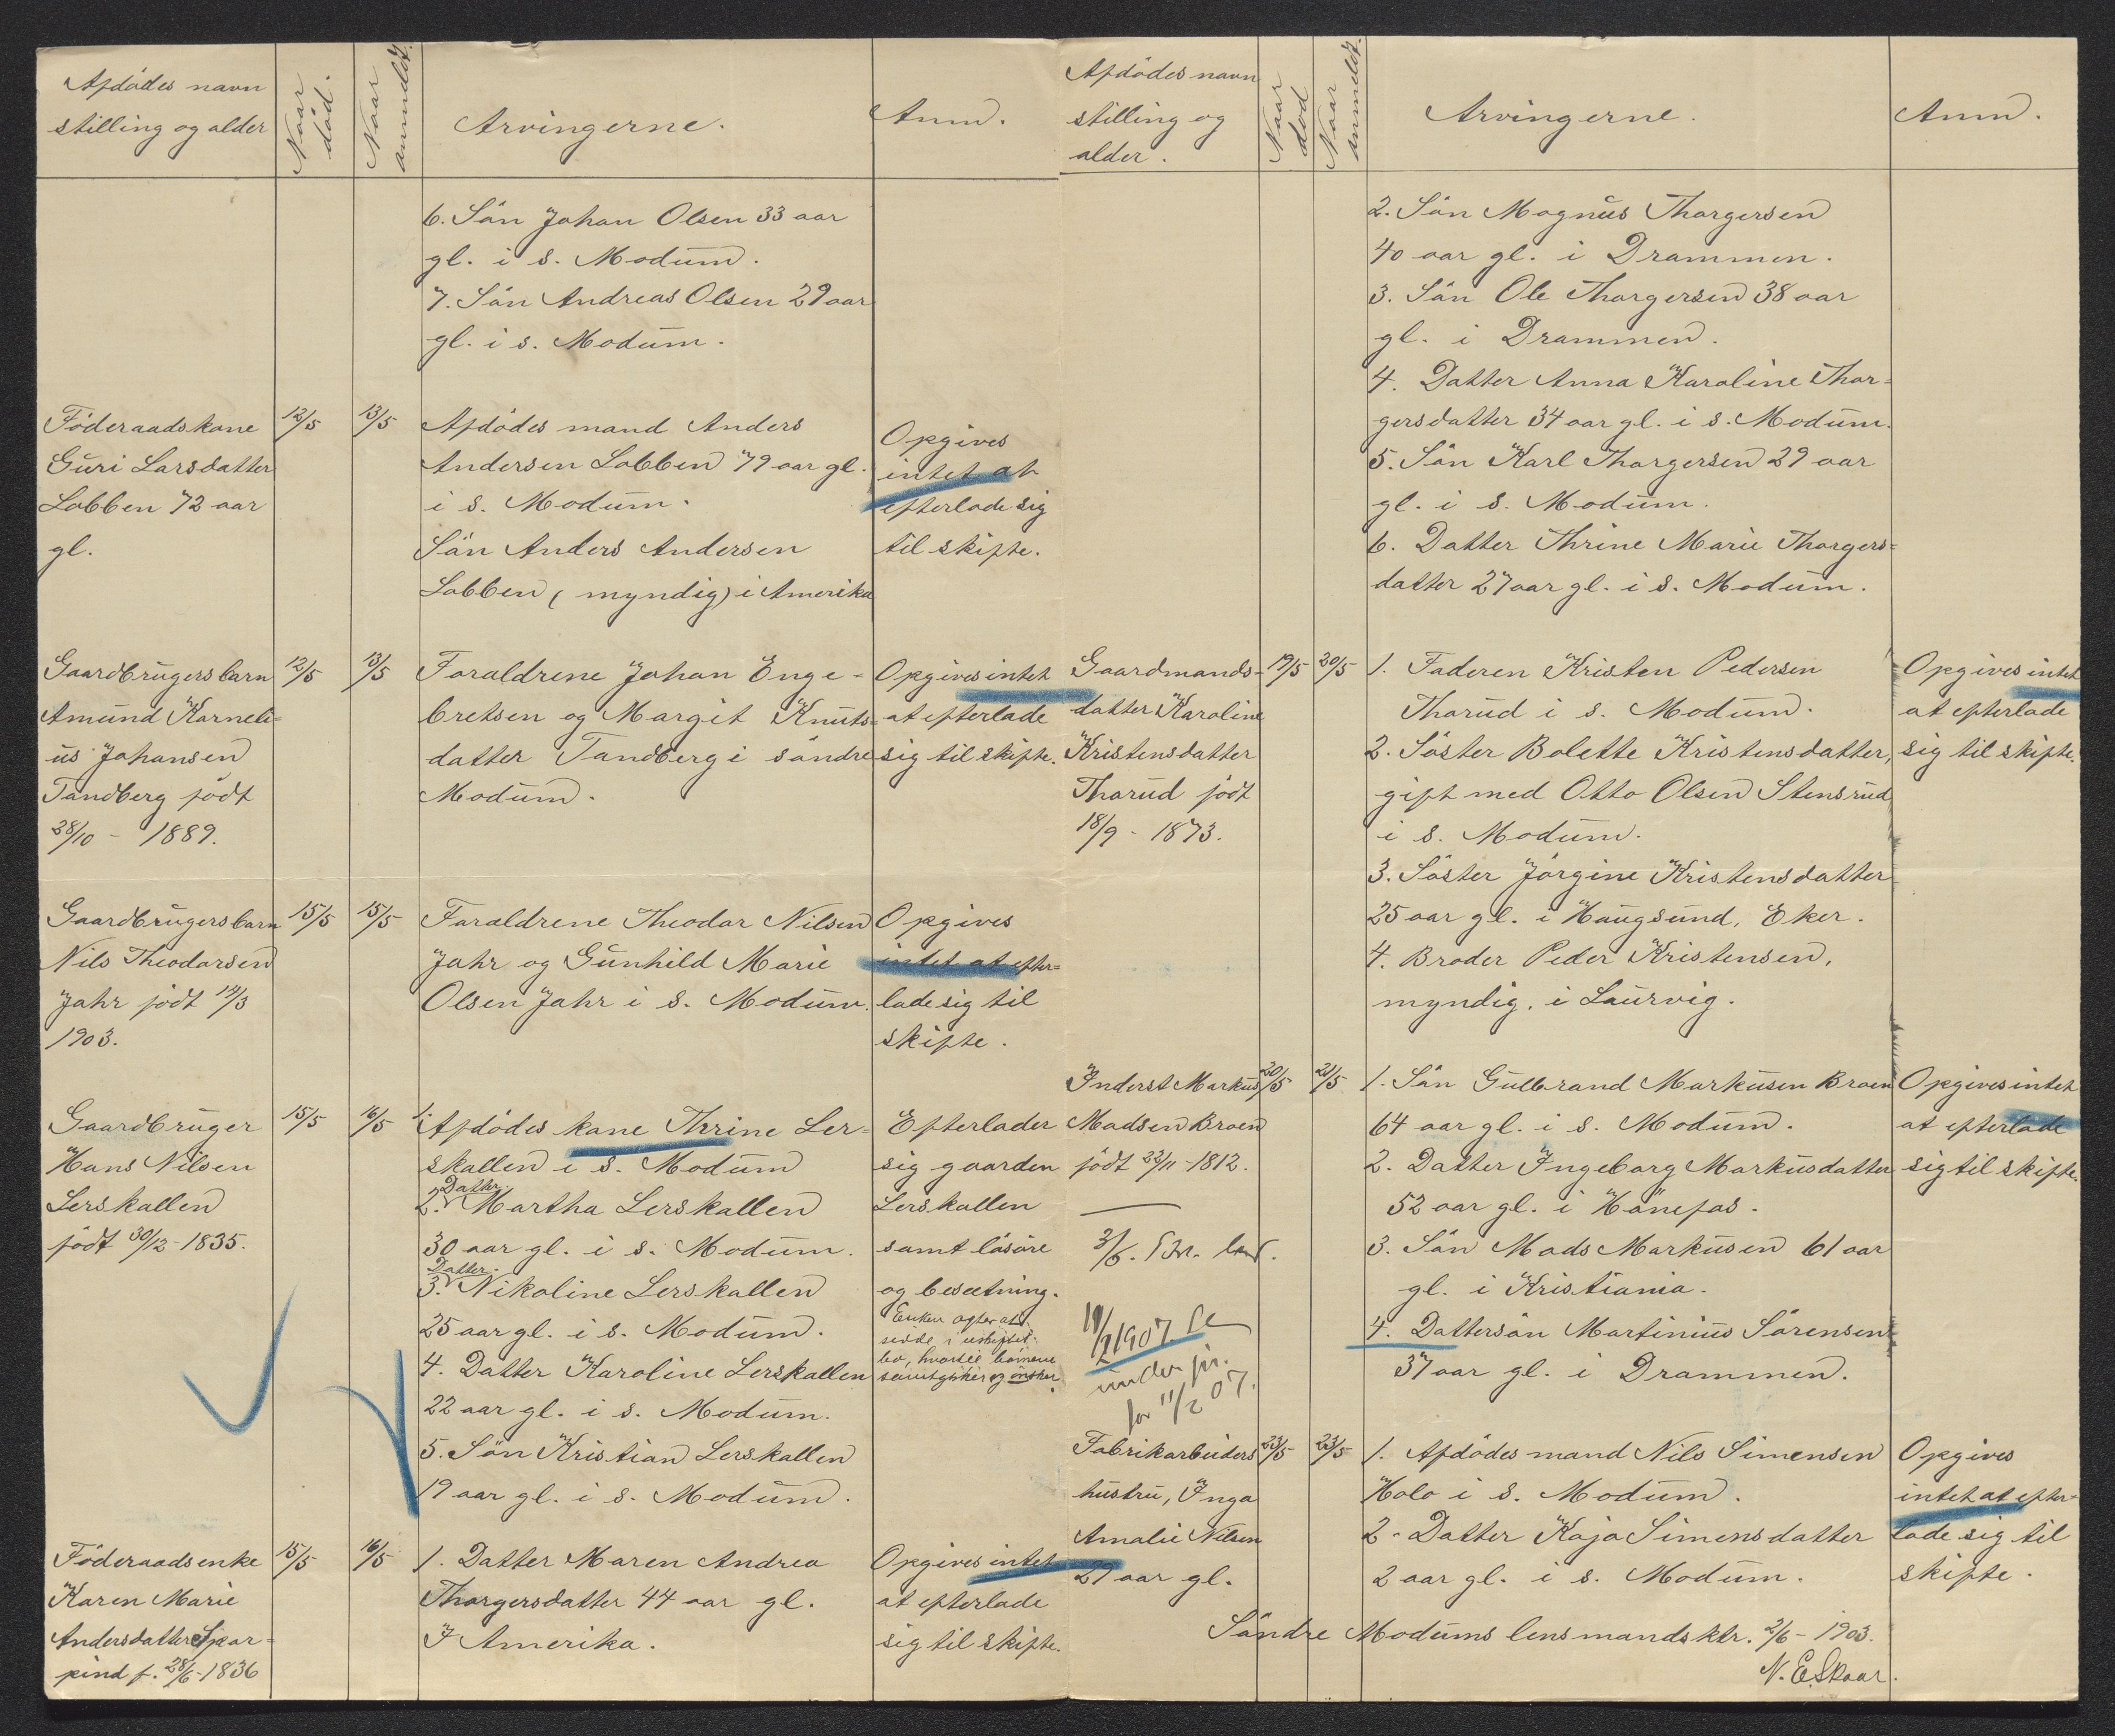 Afdødes navn
stilling og alder
Naar
død.
Naar
anmeldt.
Arvingerne.
Anm.
6. Sön Johan Olsen 33 aar
gl. i s. Modum.
7. Sön Andreas Olsen 29 aar
gl. i s. Modum.
Föderaadskone
Guri Larsdatter
Lobben 72 aar
gl.
12/5
13/5
Afdödes mand Anders
Andersen Lobben 79 aar gl.
i s. Modum.
Sön Anders Andersen
Lobben (myndig) i Amerika
Opgives
intet at
efterlade sig
til skifte.
Gaardbrugersbarn
Amund Karneli=
us Johansen
Tandberg född
28/10 - 1889.
12/5
13/5
Foraldrene Johan Enge-
bretsen og Margit Knuts=
datter Tandberg i söndre
Modum.
Opgives intet
at efterlade
sig til skifte.
Gaardbrugersbarn
Nils Theodorsen
Jahr födt 14/3
1903.
15/5
15/5
Foraldrene Theodor Nilsen
Jahr og Gunhild Marie
Olsen Jahr i s. Modum.
Opgives
intet at efter=
lade sig til
skifte.
Gaardbruger
Hans Nilsen
Lerskallen
födt 30/12 - 1835.
15/5
16/5
1. Afdödes kone Thrine Ler=
skallen i s. Modum
Datter
2. Martha Lerskallen
30 aar gl. i s. Modum.
Datter.
3. Nikoline Lerskallen
25 aar gl. i s. Modum.
4. Datter Karoline Lerskallen
22 aar gl. i s. Modum.
5. Sön Kristian Lerskallen
19 aar gl. i s. Modum.
Efterlader
sig gaarden
Lerskallen
samt lösöre
og besetning.
Enken agter at
sidde i uskiftet
bo, hvortil börnene
samtykker og önsker.
Föderaadsenke
Karen Marie
Andersdatter Skor=
pind f. 28/6 - 1836
15/5
16/5
1. Datter Maren Andrea
Thorgersdatter 44 aar gl.
I Amerika.
Opgives intet
at efterlade
sig til skifte.
Afdödes navn
stilling og
alder.
Naar
död
Naar
anmeldt.
Arvingerne.
Anm.
2. Sön Magnus Thorgersen
40 aar gl. i Drammen.
3. Sön Ole Thorgersen 38 aar
gl. i Drammen.
4. Datter Anna Karoline Thor=
gersdatter 34 aar gl. i s. Modum.
5. Sön Karl Thorgersen 29 aar
gl. i s. Modum.
6. Datter Thrine Marie Thorgers=
datter 27 aar gl. i s. Modum.
Gaardmands-
datter Karoline
Kristensdatter
Thorud födt
18/9 - 1873.
19/5
20/5
1. Faderen Kristen Pedersen
Thorud i s. Modum.
2. Söster Bolette Kristensdatter,
gift med Otto Olsen Stensrud
i s. Modum.
3. Söster Jörgine Kristensdatter
25 aar gl. i Haugsund, Eker.
4. Broder Peder Kristensen,
myndig, i Laurvig.
Opgives intet
at efterlade
sig til skifte.
Inderst Markus
Madsen Broen
födt 23/11 - 1812.
20/5
21/5
1. Sön Gulbrand Markusen Broen
64 aar gl. i s. Modum.
2. Datter Ingeborg Markusdatter
52 aar gl. i Hönefos.
3. Sön Mads Markusen 61 aar
gl. i Kristiania.
4. Dattersön Martinius Sörensen
37 aar gl. i Drammen.
Opgives intet
at efterlade
sig til skifte.
3/6.
1907
under
for 11/2 07.
Fabrikarbeiders
hustru, Inga
Amalie Nilsen
29 aar gl.
23/5
23/5
1. Afdödes mand Nils Simensen
Holo i s. Modum.
2. Datter Kaja Simensdatter
2 aar gl. i s. Modum.
Opgives
intet at efter=
lade sig til
skifte.
Söndre Modums lensmandsktr. 2/6 - 1903.
N. E. Skaar.